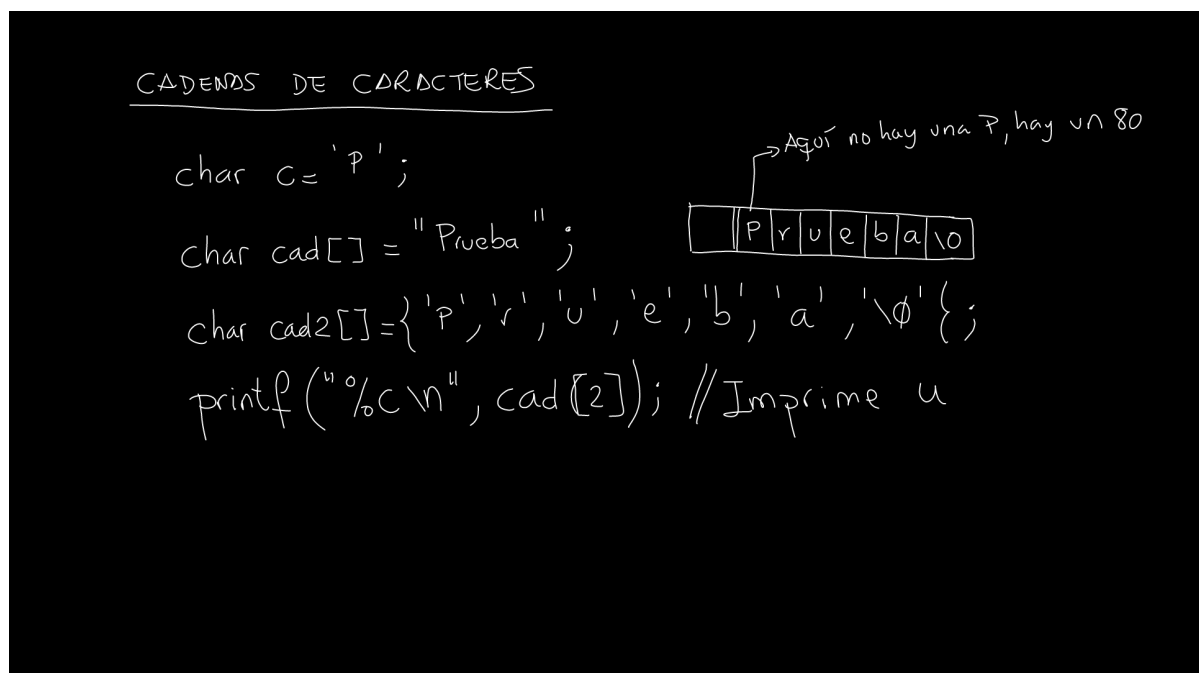 CADENAS DE CARACTERES
Aquí no hay una P, hay un 80
char c= 'P';
char cad[] = "Prueba";
P r u e b a \0
char cad2[]={'P','r','u','e','b','a','\0'{;
printf("%c\n", cad[2]); //Imprime u